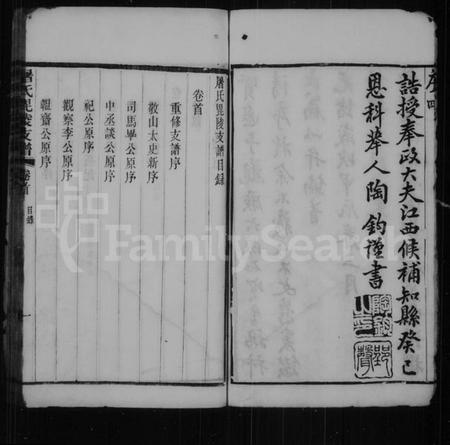 誥授奉政大夫江西候補知縣癸巳
恩科舉人陶鈞謹書
屠氏毘陵支譜目錄
卷首
重修支譜序
敬山太史新序
司馬畢公原序
中丞談公原序
祀公原序
觀察李公原序
韞齋公原序
屠氏毘陵支譜 卷首 目錄 一
FamilySearch